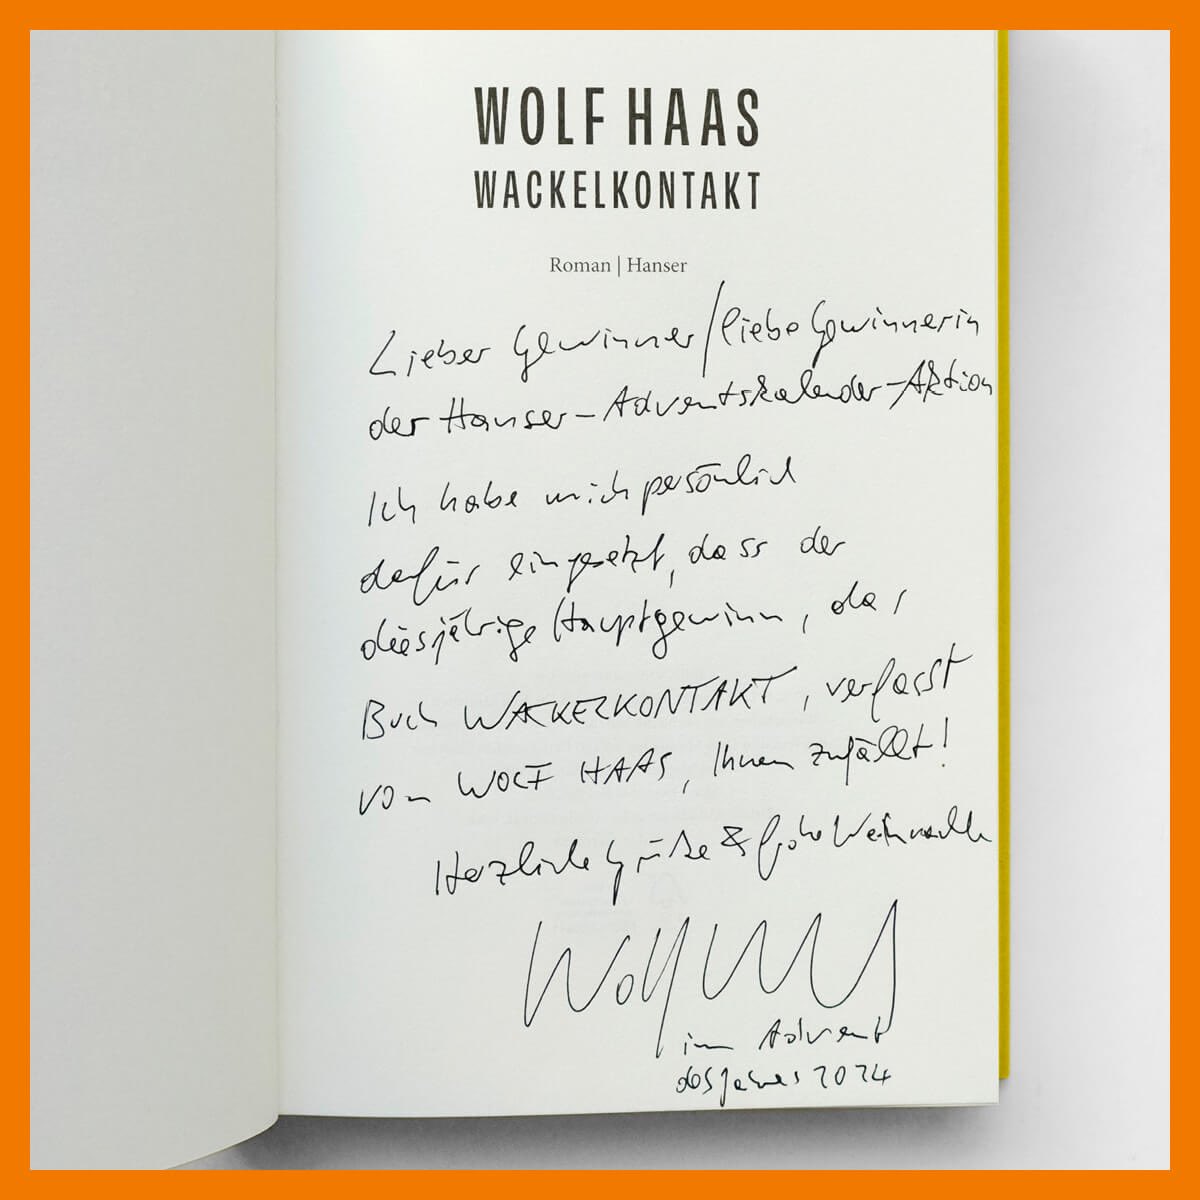 WOLF HAAS
WACKELKONTAKT
Roman | Hanser
Lieber Gewinner / liebe Gewinnerin
der Hanser-Adventskalender-Aktion
Ich habe mich persönlich
dafür eingesetzt, dass der
diesjährige Hauptgewinn, das
Buch WACKELKONTAKT, verfasst
von WOLF HAAS, Ihnen zufällt!
Herzliche Grüße & frohe Weihnachten
Wolf Haas
im Advent
des Jahres 2024